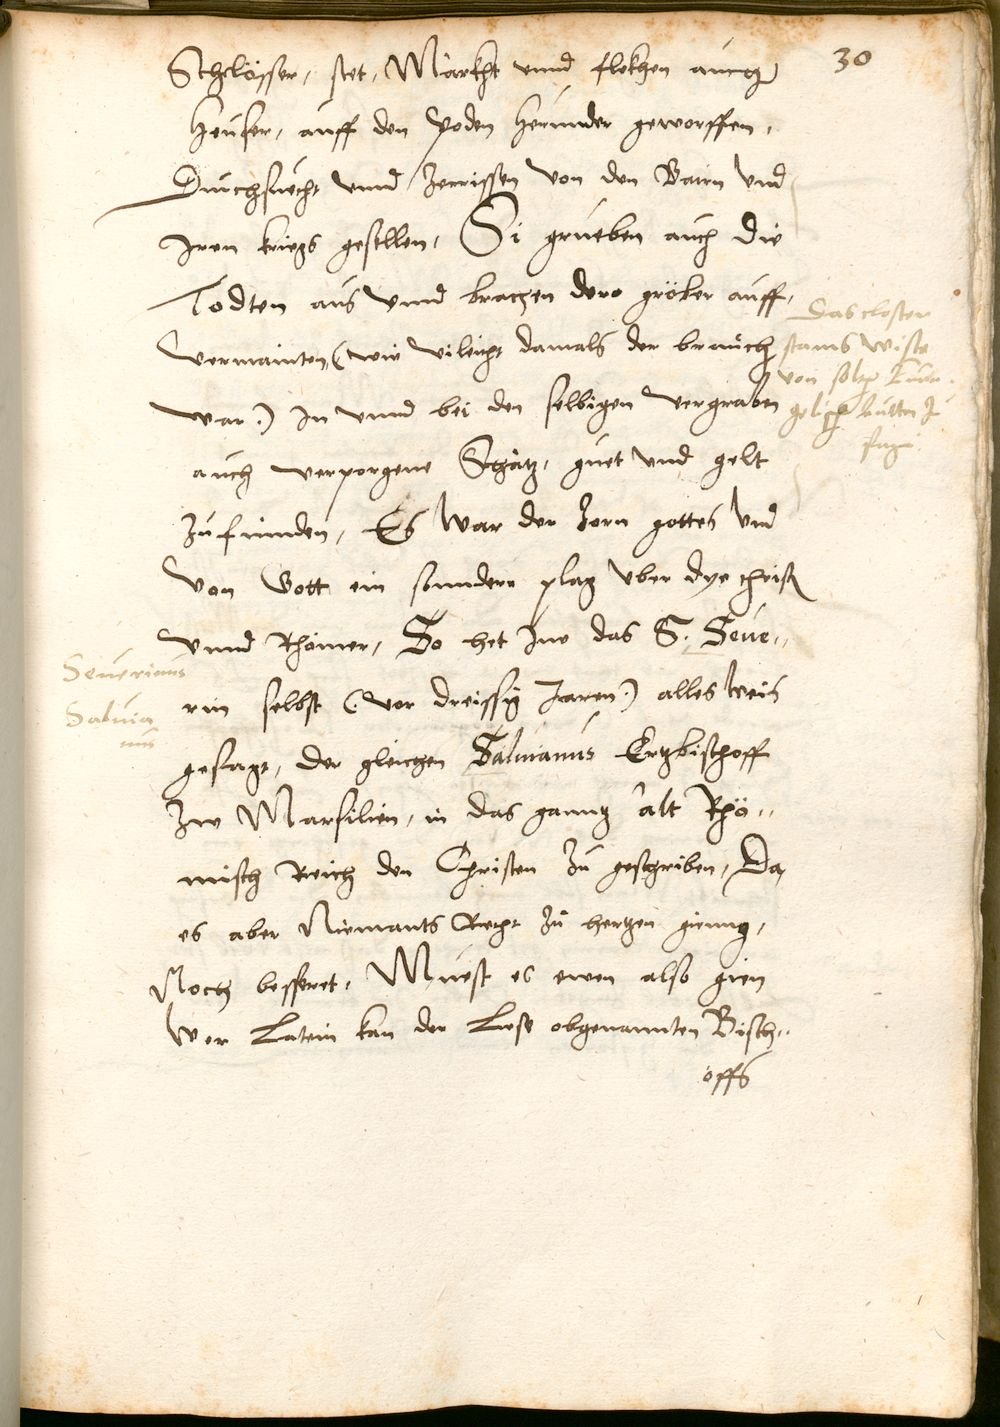 30
Schlösser, stet, Märkht vnnd flekhen auch
heuser, auff den Poden herunder geworffen,
Durchsuecht vnnd Zerrissen von den Bairn vnd
Iren kriegs gesellen, Si grueben auch die
Todten aus vnnd brachen dero gröber auff,
vermainten, (wie vileicht damals der brauch
war.) In vnnd bei den selbigen vergraben
auch verporgene Schätz, guet vnd gelt
zufinnden, Es war der Zorn gottes vnd
von Gott ein sonndere plag vber dye christ
vnnd Rhömer, So het Inn das S. Seue..
rin selbst (vor dreissig Jaren.) alles weis
gesagt, der gleichen Saluianus Ertzbischoff
Zw Marsilien, in das ganntz alt Rhö..
misch Reich den Christen zu geschriben, Da
es aber Niemants Recht zu hertzen gieng,
Noch bessert, Muest es ewen also gien
Wer Latein kan der Lese obgenannten Bisch..
offs
Das closter
stams wiste
von solchen
Seuerinus
Saluia
nus